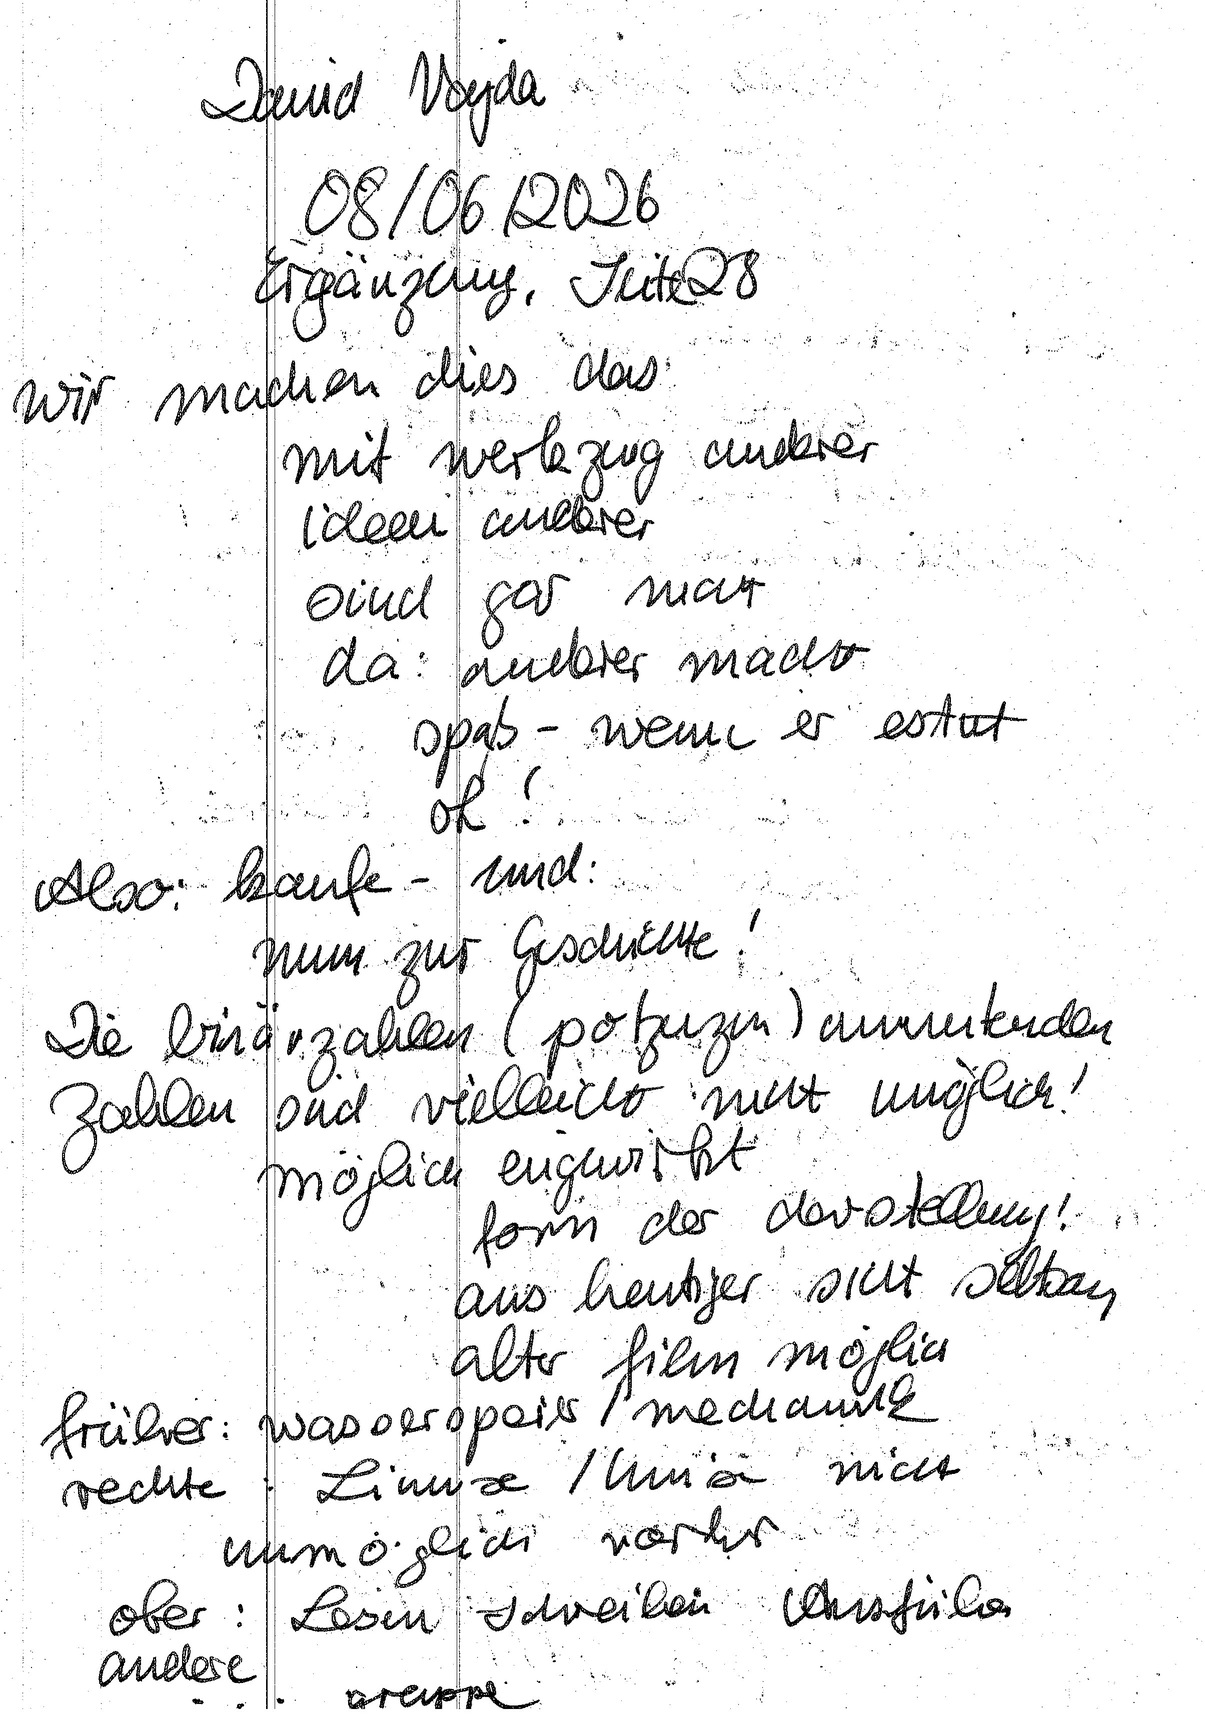 David Vajda
08/06/2026
Ergänzung, Seite 28
wir machen dies das:
mit werkzeug anderer
ideen anderer
sind gar nicht
da: anderer macht
spaß - wenn er es tut
oh!
Also: kaufe - und:
nun zur Geschichte!
Die binärzahlen ( ) 
Zahlen sind vielleicht nicht möglich!
möglich
form der darstellung!
aus heutiger sicht seltsam
alter film möglich
früher: / mechanik
rechte: Linux / Unix nicht
unmöglich vorher
aber: Lesen schreiben Ausführen
andere
gruppe